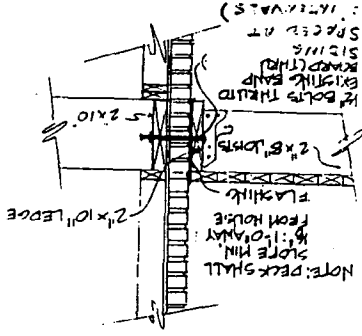 NOTE: DECK SHALL
SLOPE MIN.
1/8":1'-0" AWAY
FROM HOUSE
FLASHING
2"x10" LEDGE
2"x8" JOISTS
2x10
1/2" BOLTS THRU TO
EXISTING BAND
BOARD (THRU
SIDING
SPACED AT
INTERVALS)